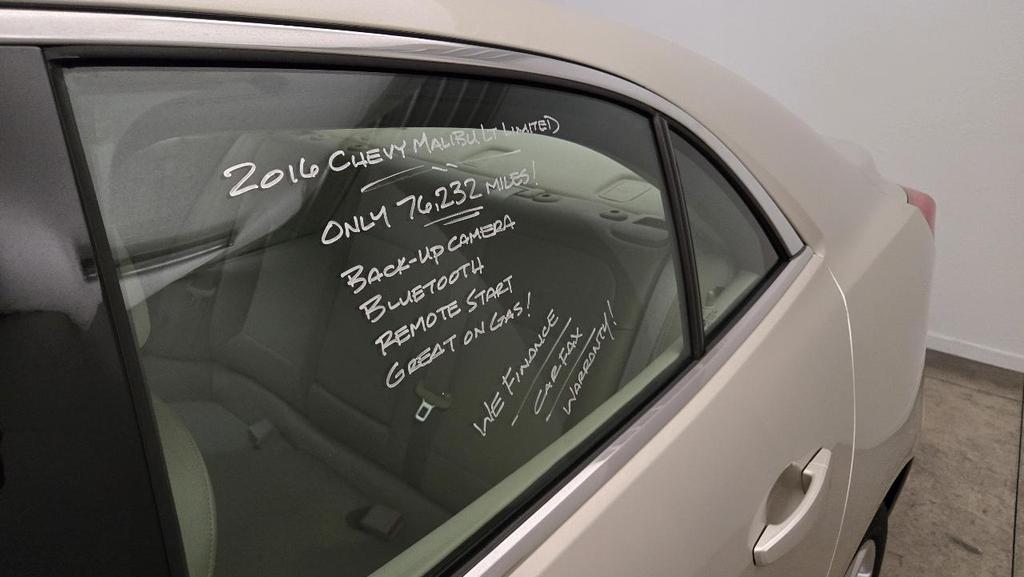 2016 CHEVY MALIBU LT LIMITED
ONLY 76,232 MILES!
BACK-UP CAMERA
BLUETOOTH
REMOTE START
GREAT ON GAS!
WE FINANCE
CARFAX
WARRANTY!